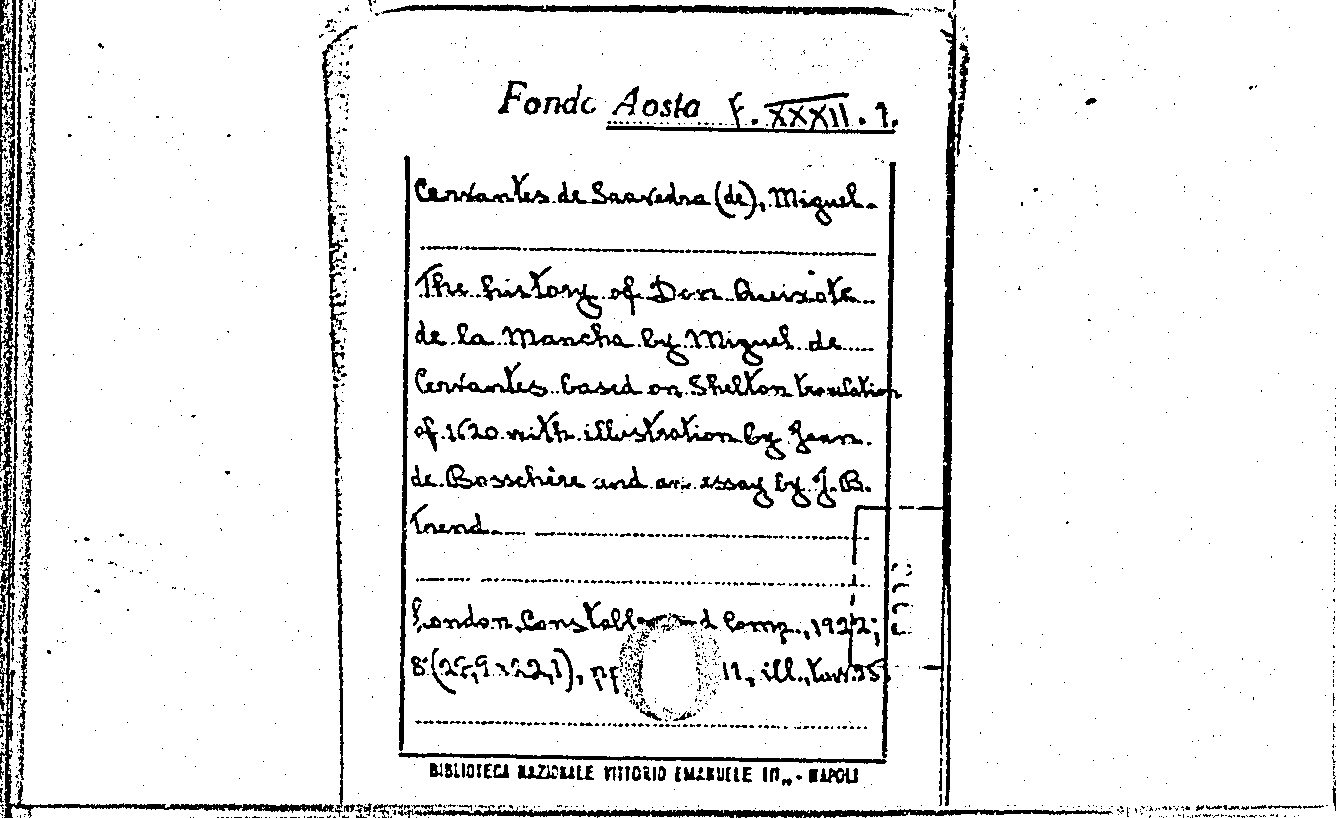 Fondo Aosta F. XXXII. 1.
Cervantes de Saavedra (de), Miguel.
The history of Don Quixote
de la Mancha by Miguel de
Cervantes based on Shelton translation
of 1620 with illustration by Jean
de Bosschère and an essay by J. B.
Trend.
London, Constable and Comp., 1922;
8° ( ), pp ill., tav. 25.
BIBLIOTECA NAZIONALE VITTORIO EMANUELE III - NAPOLI